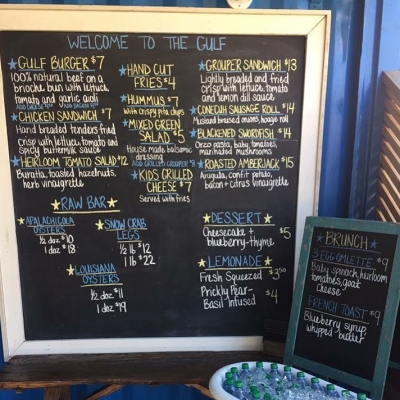 WELCOME TO THE GULF
GULF BURGER $7
100% natural beef on a
brioche bun with lettuce,
tomato and garlic aioli
CHICKEN SANDWICH $7
Hand breaded tenders fried
crisp with lettuce, tomato and
spicy buttermilk sauce
HEIRLOOM TOMATO SALAD $12
Burratta, toasted hazelnuts,
herb vinaigrette
HAND CUT
FRIES $4
HUMMUS $7
with crispy pita chips
MIXED GREEN
SALAD $5
House made balsamic
dressing
ADD GRILLED GROUPER $8
KIDS GRILLED
CHEESE $7
Served with fries
GROUPER SANDWICH $13
Lightly breaded and fried
crisp with lettuce, tomato
and lemon dill sauce
CONECUH SAUSAGE ROLL $14
Mustard braised onions, hoagie roll
BLACKENED SWORDFISH $14
Orzo pasta, baby tomatoes,
marinated mushrooms
ROASTED AMBERJACK $15
Arugula, confit potato,
bacon + citrus vinaigrette
RAW BAR
APALACHICOLA
OYSTERS
1/2 doz $10
1 doz $18
SNOW CRAB
LEGS
1/2 lb $12
1 lb $22
LOUISIANA
OYSTERS
1/2 doz $11
1 doz $19
DESSERT
Cheesecake + $5
blueberry-thyme
LEMONADE
Fresh Squeezed $3.50
Prickly Pear- $4
Basil Infused
BRUNCH
3 EGG OMLETTE $9
Baby spinach, heirloom
tomatoes, goat
cheese
FRENCH TOAST $9
Blueberry syrup,
whipped butter